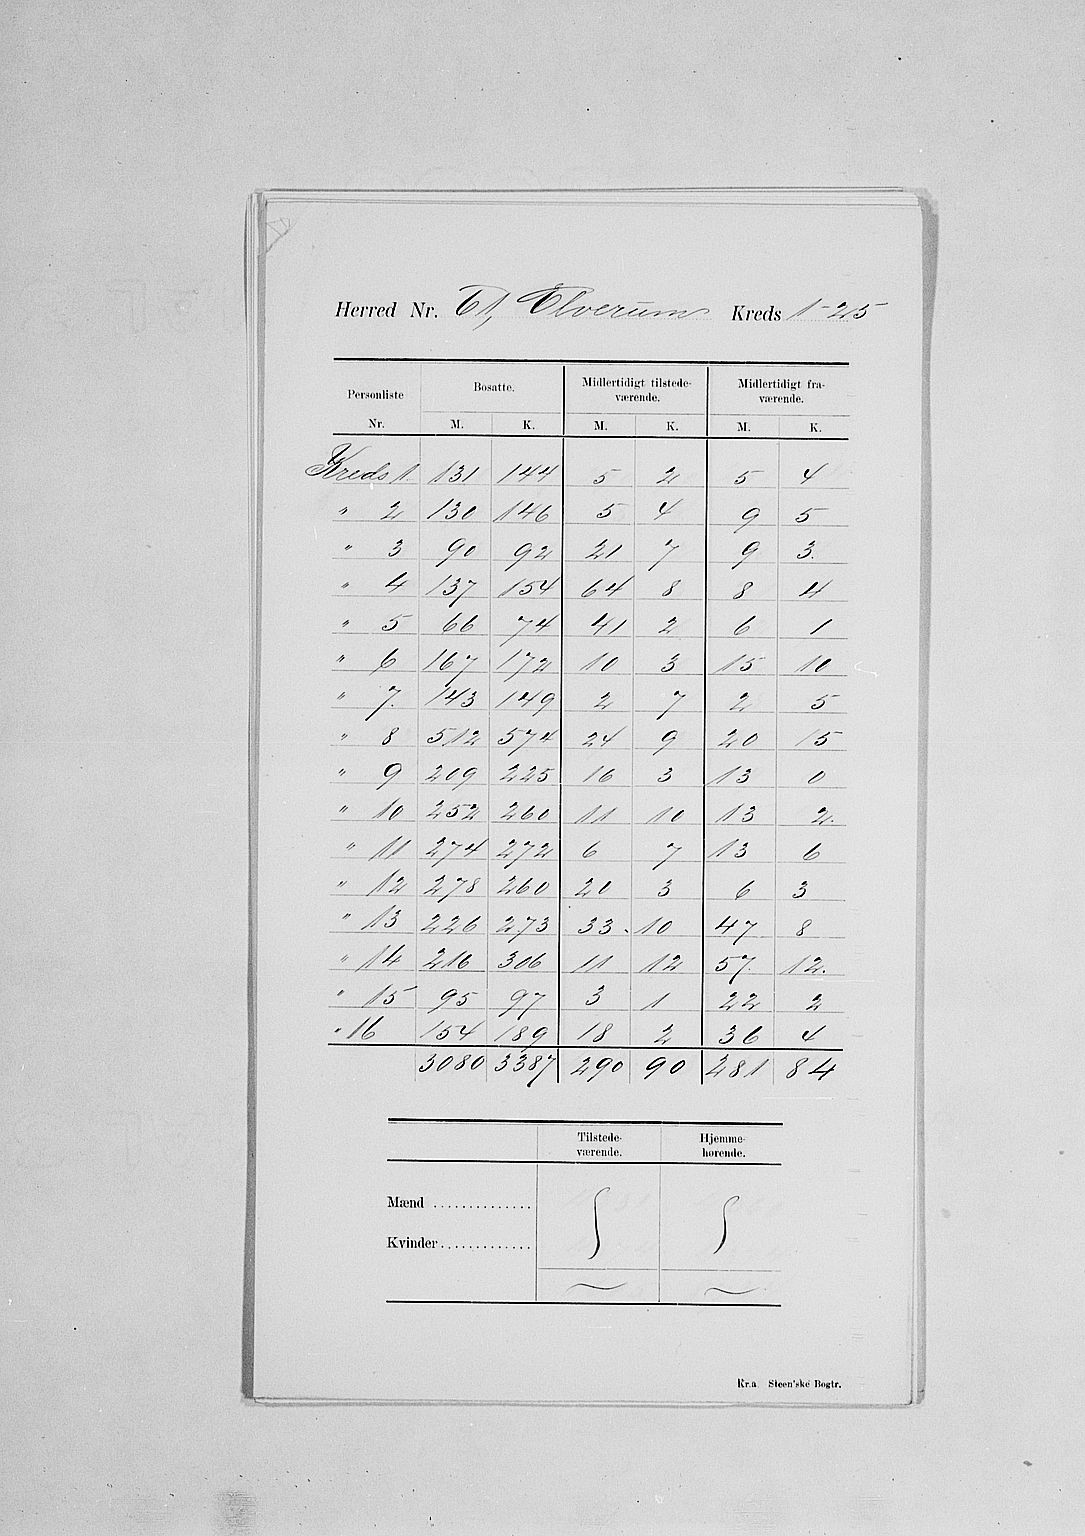 Herred Nr. 61, Elverum Kreds 1-25
Personliste Nr. Bosatte. Midlertidigt tilstede-værende. Midlertidigt fra-værende.
M. K. M. K. M. K.
Kreds 1. 131 144 5 2 5 4
" 2 130 146 5 4 9 5
" 3 90 92 21 7 9 3.
" 4 137 154 64 8 8 4
" 5 66 74 41 2 6 1
" 6 167 172 10 3 15 10
" 7. 143 149 2 7 2 5
" 8 512 574 24 9 20 15
" 9 209 225 16 3 13 0
" 10 252 260 11 10 13 2.
" 11 274 272 6 7 13 6
" 12 278 260 20 3 6 3
" 13 226 273 33 10 47 8
" 14 216 306 11 12 57. 12.
" 15 95 97 3 1 22 2
" 16 154 189 18 2 36 4
3080 3387 290 90 281 84
Tilstede-værende. Hjemme-hørende.
Mænd ..............
Kvinder .............
Kr.a Steen'ske Bogtr.